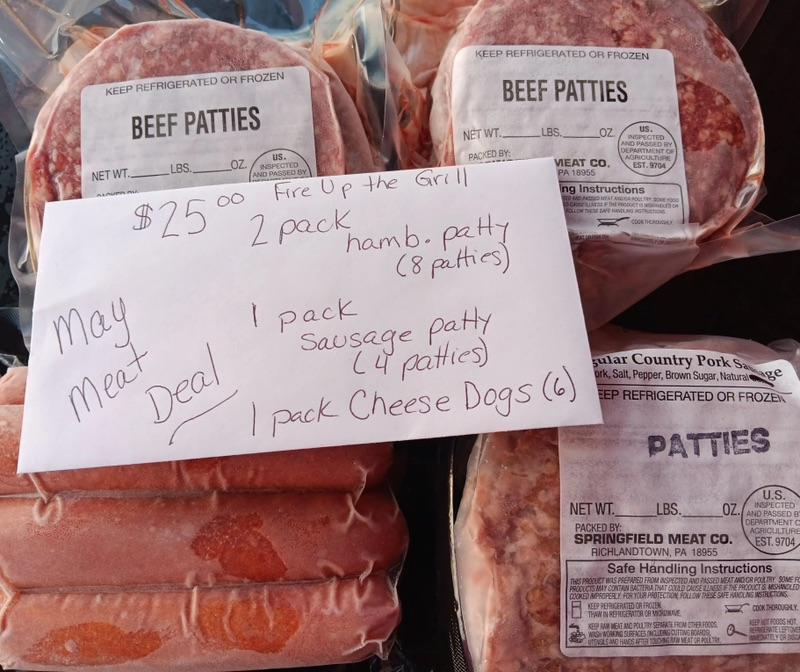 KEEP REFRIGERATED OR FROZEN
BEEF PATTIES
NET WT.______LBS.______OZ.
US.
INSPECTED
AND PASSED BY
DEPARTMENT OF
KEEP REFRIGERATED OR FROZEN
BEEF PATTIES
NET WT.______LBS.______OZ.
PACKED BY:
MEAT CO.
PA 18955
US.
INSPECTED
AND PASSED BY
DEPARTMENT OF
AGRICULTURE
EST. 9704
ng Instructions
COOK THOROUGHLY.
$25.00 Fire Up the Grill
2 pack
hamb. patty
(8 patties)
May
Meat
Deal
1 pack
sausage patty
(4 patties)
1 pack Cheese Dogs (6)
gular Country Pork Sausage
ork, Salt, Pepper, Brown Sugar, Natural
EEP REFRIGERATED OR FROZEN
PATTIES
NET WT.______LBS.______OZ.
PACKED BY:
SPRINGFIELD MEAT CO.
RICHLANDTOWN, PA 18955
U.S.
INSPECTED
AND PASSED B
DEPARTMENT O
AGRICULTURE
EST. 9704
Safe Handling Instructions
THIS PRODUCT WAS PREPARED FROM INSPECTED AND PASSED MEAT AND/OR POULTRY. SOME FO
PRODUCTS MAY CONTAIN BACTERIA THAT COULD CAUSE ILLNESS IF THE PRODUCT IS MISHANDLED
COOKED IMPROPERLY. FOR YOUR PROTECTION, FOLLOW THESE SAFE HANDLING INSTRUCTIONS.
KEEP REFRIGERATED OR FROZEN.
THAW IN REFRIGERATOR OR MICROWAVE.
COOK THOROUGHLY.
KEEP RAW MEAT AND POULTRY SEPARATE FROM OTHER FOODS.
WASH WORKING SURFACES (INCLUDING CUTTING BOARDS),
UTENSILS, AND HANDS AFTER TOUCHING RAW MEAT OR POULTRY.
KEEP HOT FOODS HOT.
REFRIGERATE LEFTOVE
IMMEDIATELY OR DISC